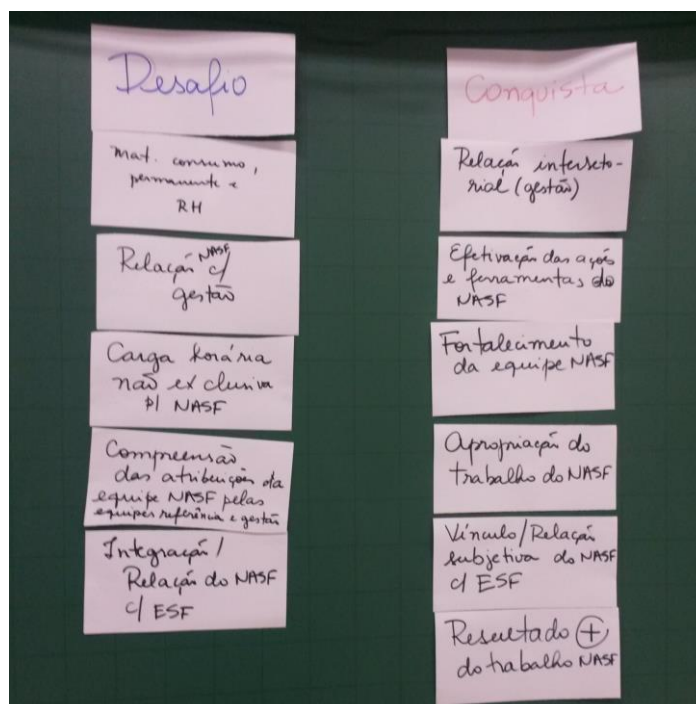 Desafio
Mat. consumo,
permanente e
RH
Relação NASF c/
gestão
Carga horária
não exclusiva
p/ NASF
Compreensão
das atribuições da
equipe NASF pelas
equipes referência e gestão
Integração/
Relação do NASF
c/ ESF
Conquista
Relação interseto-
rial (gestão)
Efetivação das ações
e ferramentas do
NASF
Fortalecimento
da equipe NASF
Apropriação do
trabalho do NASF
Vínculo/Relação
subjetiva do NASF
c/ ESF
Resultado ⊕
do trabalho NASF